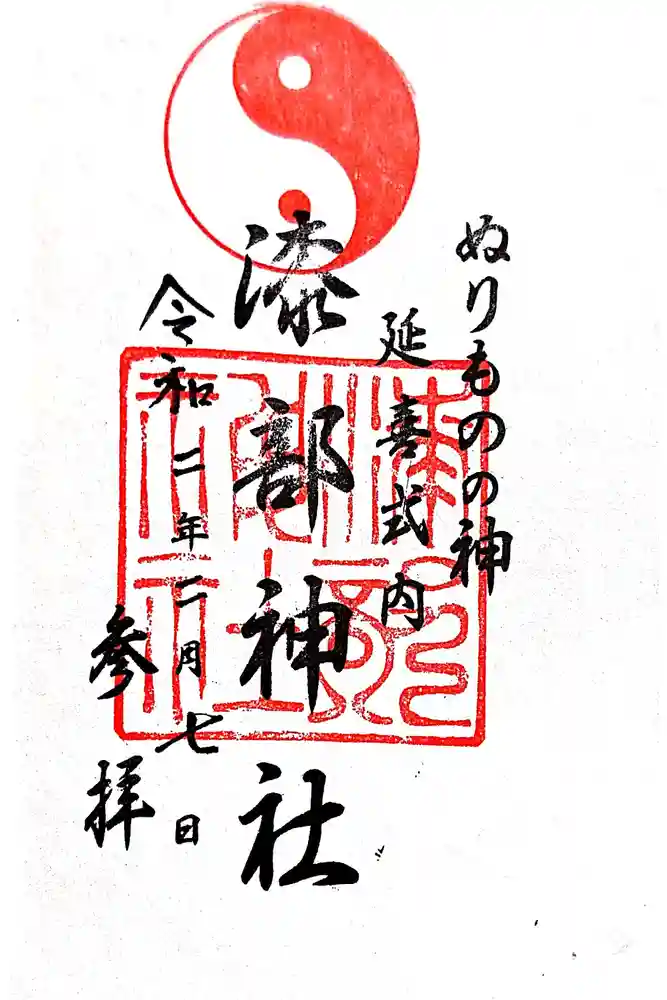 ぬりものの神
延喜式内
漆部神社
令和二年二月七日
参拝